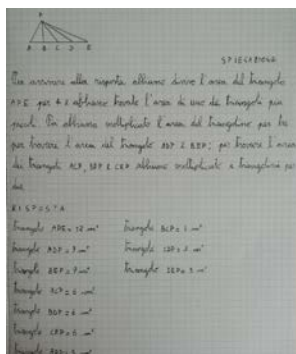 P
A B C D E
SPIEGAZIONE
Per arrivare alla risposta abbiamo diviso l'area del triangolo
APE per 4 e abbiamo trovato l'area di uno dei triangoli più
piccoli. Poi abbiamo moltiplicato l'area del triangolino per tre
per trovare l'area del triangolo ADP e BEP; per trovare l'area
dei triangoli ACP, BDP e CEP abbiamo moltiplicato i triangolini per
due.
RISPOSTA
Triangolo APE = 12 cm²
Triangolo ADP = 9 cm²
Triangolo BEP = 9 cm²
Triangolo ACP = 6 cm²
Triangolo BDP = 6 cm²
Triangolo CEP = 6 cm²
Triangolo = 3 cm²
Triangolo BCP = 3 cm²
Triangolo CDP = 3 cm²
Triangolo DEP = 3 cm²